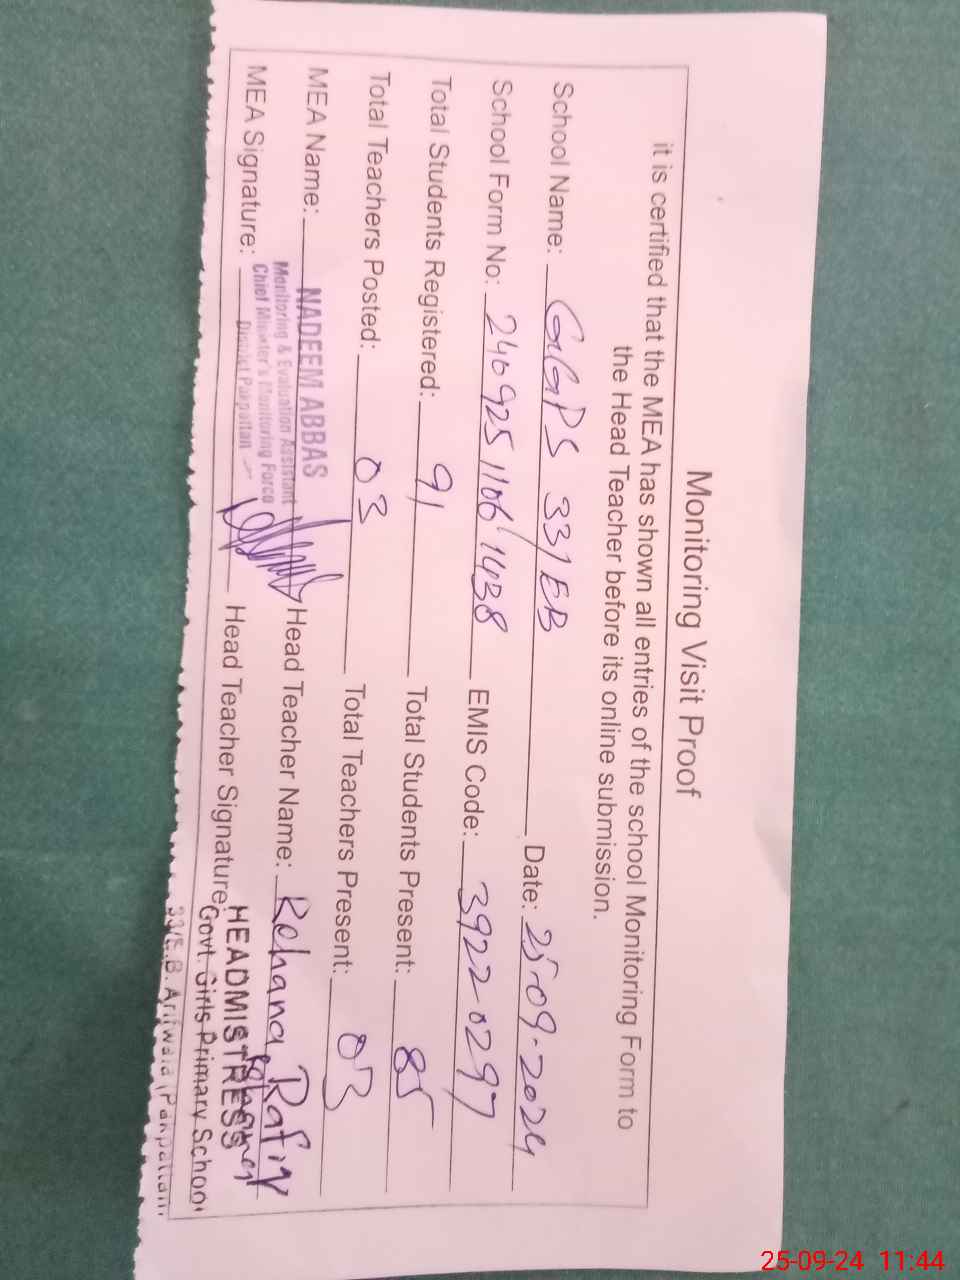 Monitoring Visit Proof
it is certified that the MEA has shown all entries of the school Monitoring Form to
the Head Teacher before its online submission.
School Name: GGPS 33/EB Date: 25-09-2024
School Form No: 240925 1106 1438 EMIS Code: 3922-0297
Total Students Registered: 91 Total Students Present: 85
Total Teachers Posted: 03 Total Teachers Present: 03
MEA Name: NADEEM ABBAS Head Teacher Name: Rehana Rafiq
Monitoring & Evaluation Assistant
Chief Minister's Monitoring Force
District Pakpattan
MEA Signature: Head Teacher Signature:
HEADMISTRESS
Govt. Girls Primary School
33/E.B. Arifwala (Pakpattan)
25-09-24 11:44